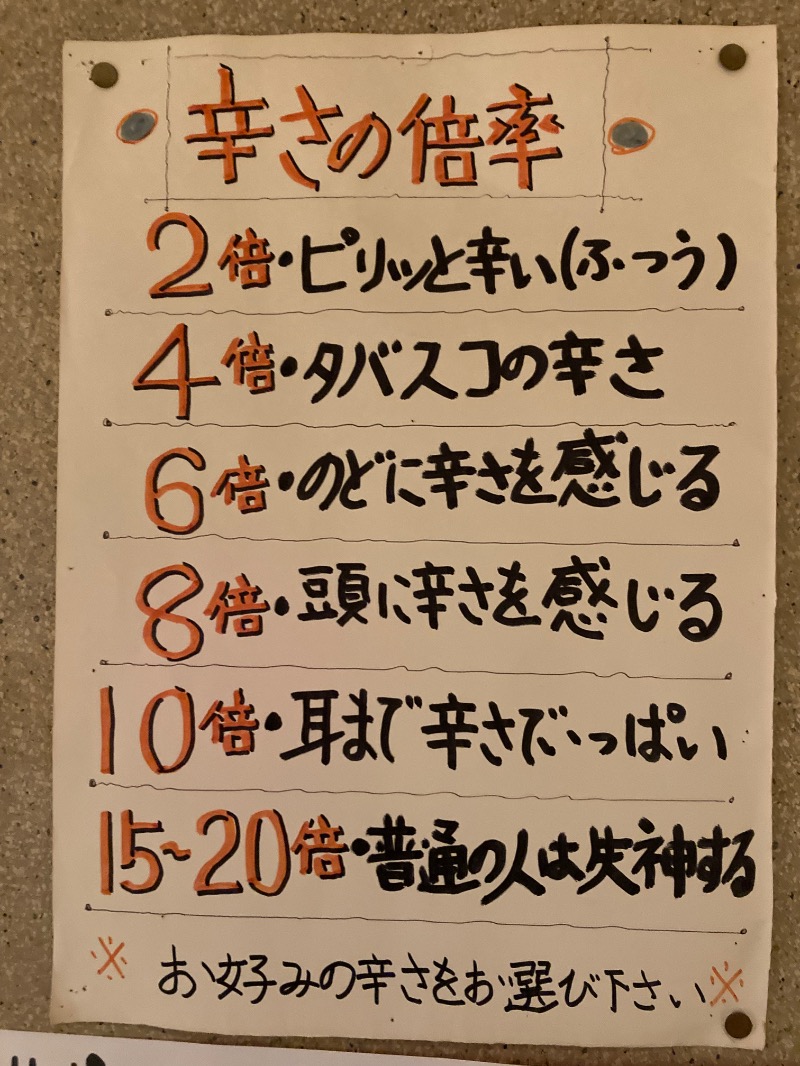 辛さの倍率
2倍・ピリッと辛い(ふつう)
4倍・タバスコの辛さ
6倍・のどに辛さを感じる
8倍・頭に辛さを感じる
10倍・耳まで辛さでいっぱい
15~20倍・普通の人は失神する
※お好みの辛さをお選び下さい※